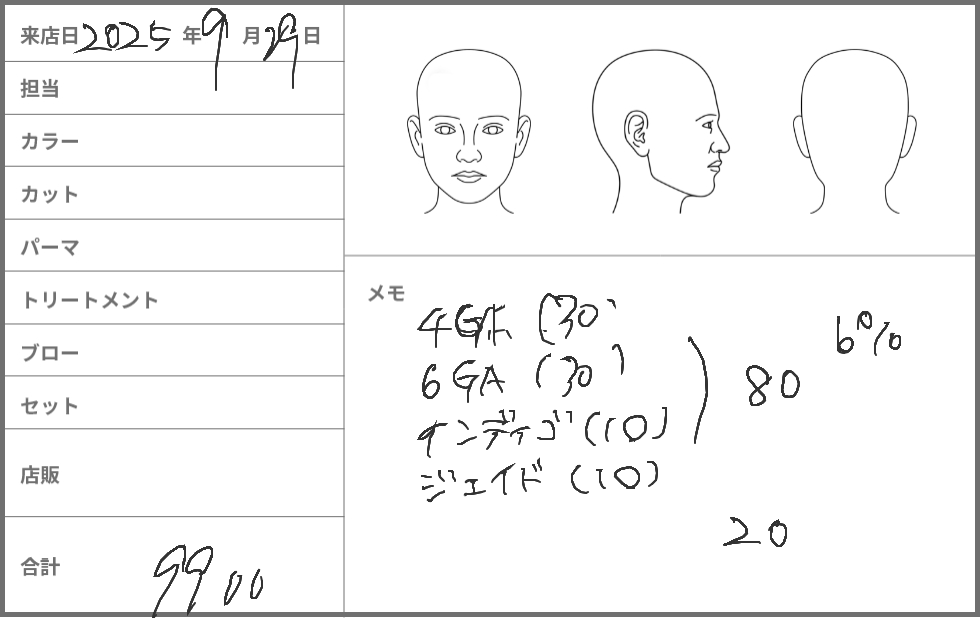 来店日2025年9月29日
担当
カラー
カット
パーマ
トリートメント
ブロー
セット
店販
合計 9900
メモ
(30)
6GA (30)
インディゴ(10)
ジェイド(10)
80
6%
20